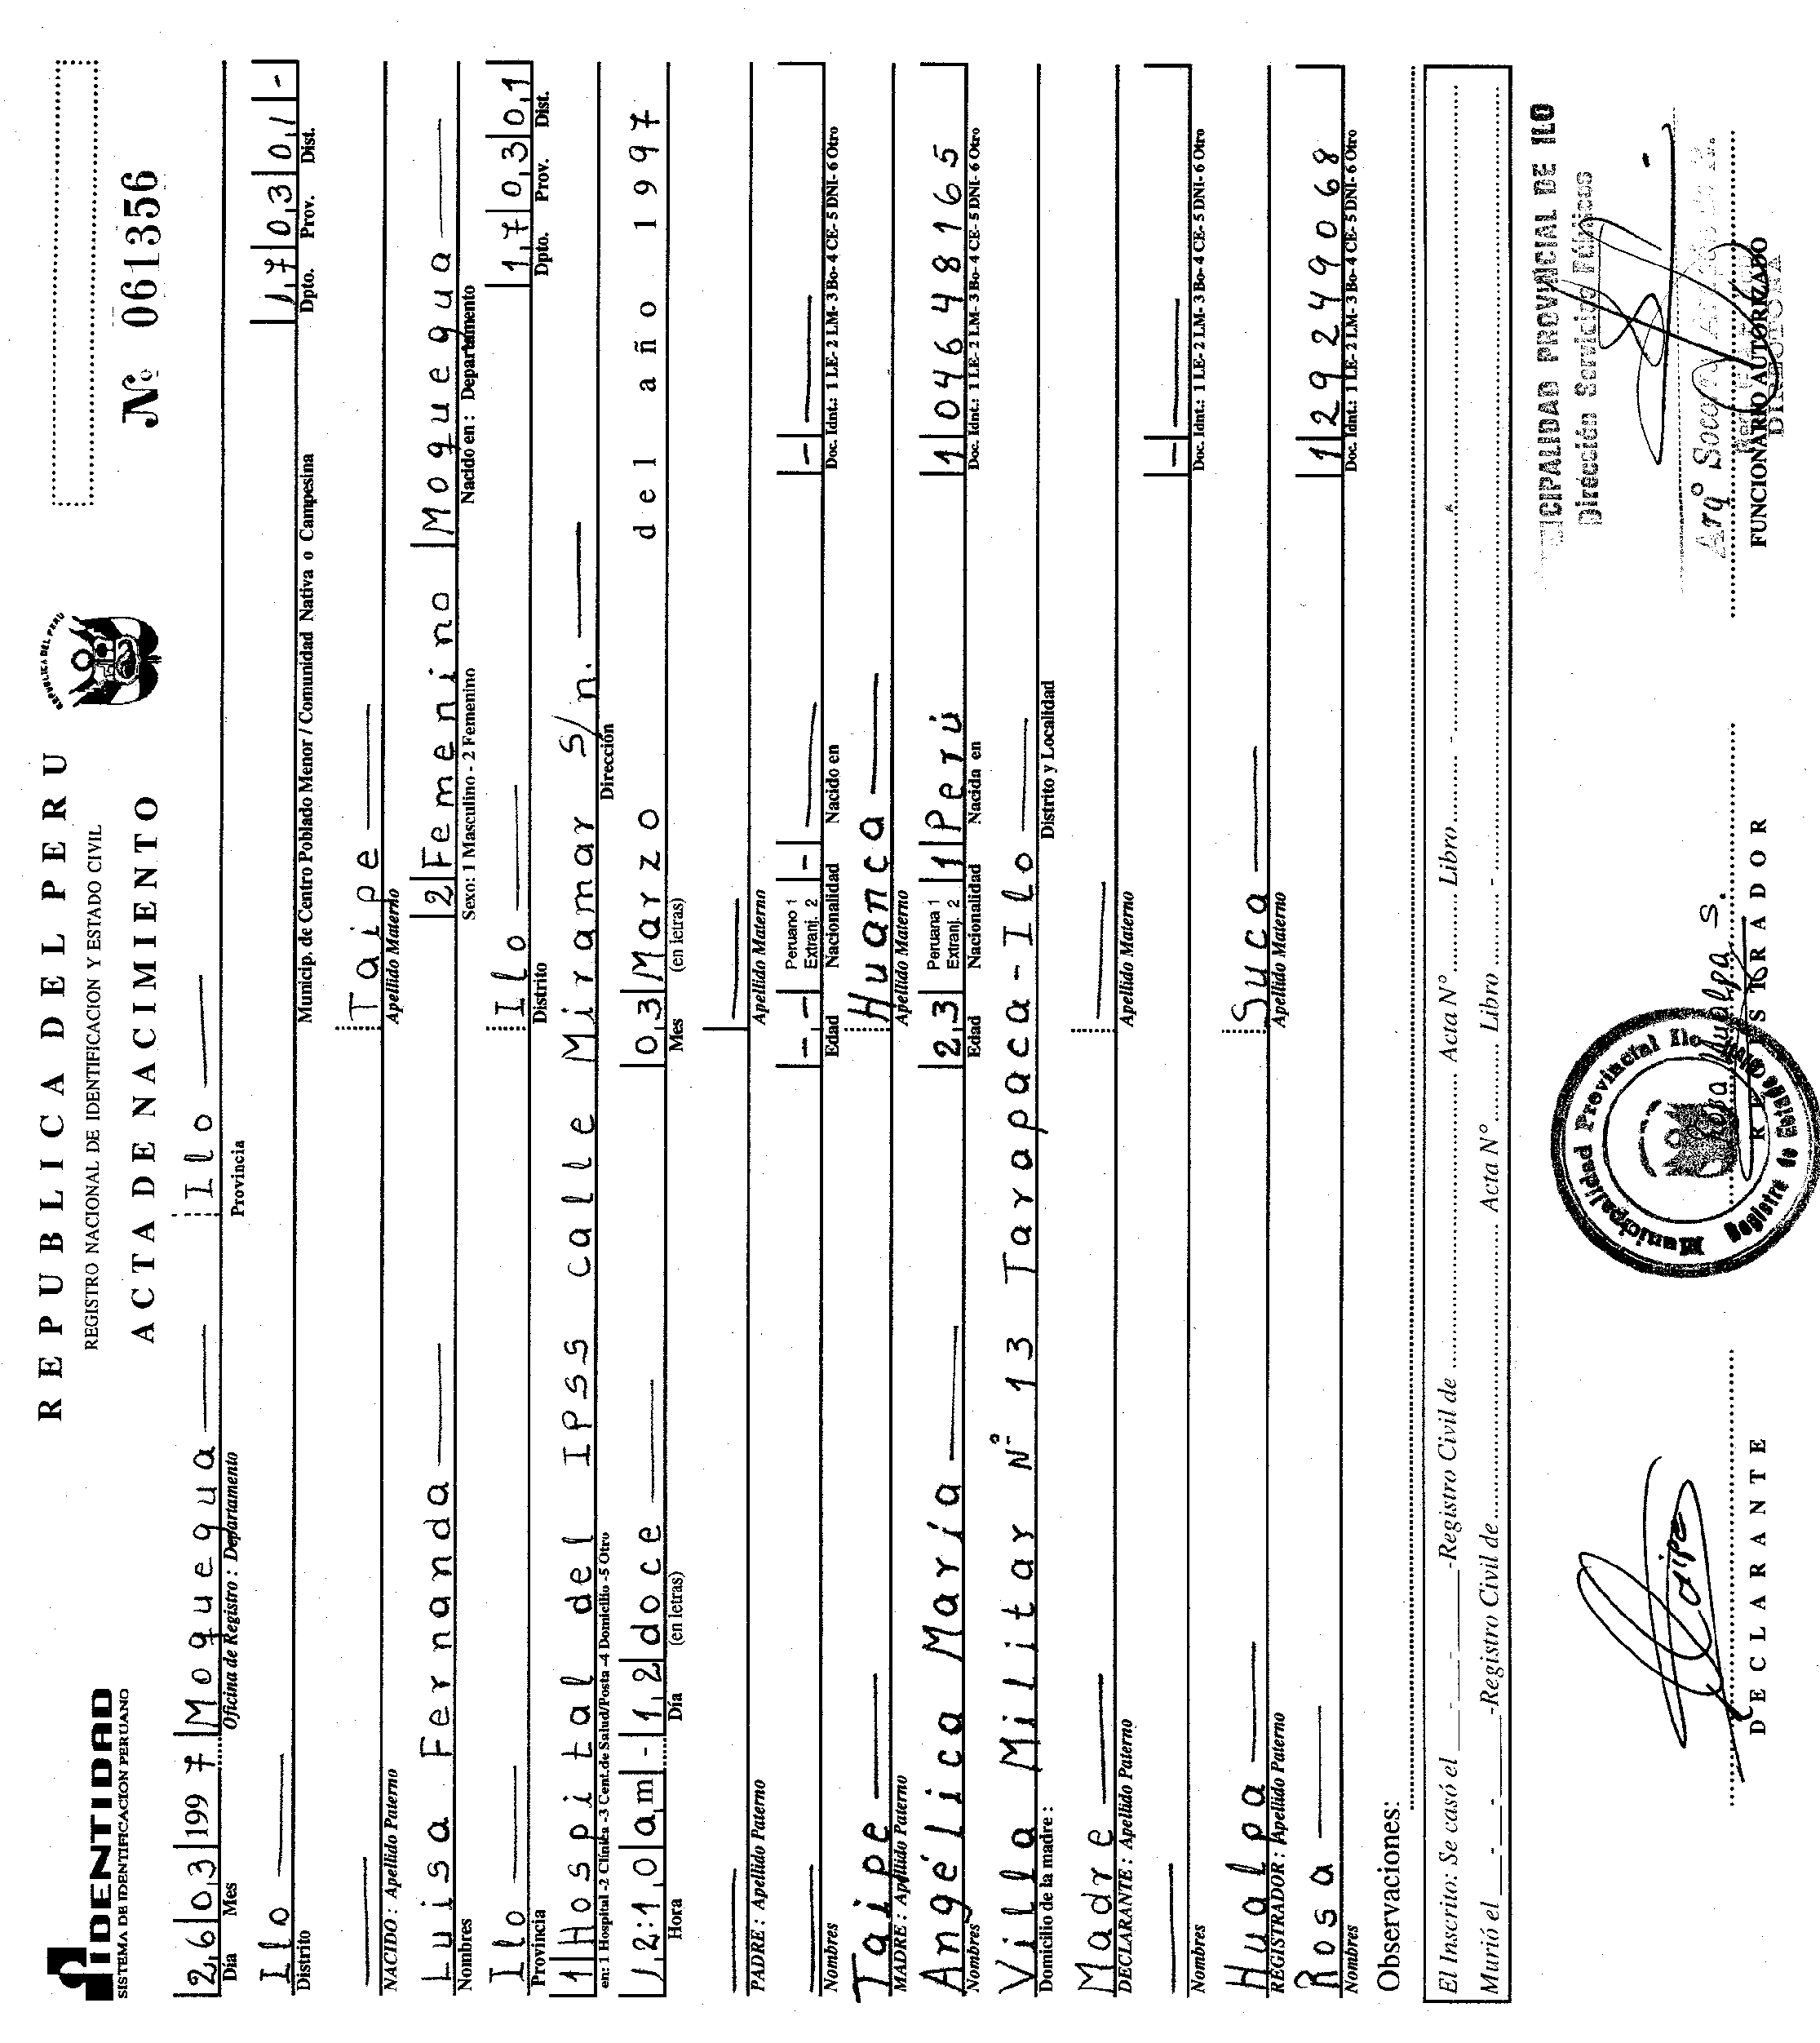 IDENTIDAD
SISTEMA DE IDENTIFICACION PERUANO
REPUBLICA DEL PERU
REGISTRO NACIONAL DE IDENTIFICACION Y ESTADO CIVIL
ACTA DE NACIMIENTO
REPUBLICA DEL PERU
Nº 061356
26 03 1997 Moquegua Ilo
Día Mes Oficina de Registro : Departamento Provincia
Ilo 17 03 01 -
Distrito Municip. de Centro Poblado Menor / Comunidad Nativa o Campesina Dpto. Prov. Dist.
Taipe
NACIDO : Apellido Paterno Apellido Materno
Luisa Fernanda 2 Femenino Moquegua
Nombres Sexo: 1 Masculino - 2 Femenino Nacido en : Departamento
Ilo Ilo 17 03 01
Provincia Distrito Dpto. Prov. Dist.
1 Hospital del IPSS calle Miramar S/n.
en: 1 Hospital -2 Clínica -3 Cent.de Salud/Posta -4 Domicilio -5 Otro Dirección
12:10 am - 12 doce 03 Marzo del año 1997
Hora Día (en letras) Mes (en letras)
PADRE : Apellido Paterno Apellido Materno
- - Peruano 1 Extranj. 2 - -
Nombres Edad Nacionalidad Nacido en Doc. Idnt.: 1 LE- 2 LM- 3 Bo- 4 CE- 5 DNI- 6 Otro
Taipe Huanca
MADRE : Apellido Paterno Apellido Materno
Angélica María 23 Peruana 1 Extranj. 2 1 Perú 1 04648165
Nombres Edad Nacionalidad Nacida en Doc. Idnt.: 1 LE- 2 LM- 3 Bo- 4 CE- 5 DNI- 6 Otro
Villa Militar Nº 13 Tarapaca-Ilo
Domicilio de la madre : Distrito y Localidad
Madre
DECLARANTE : Apellido Paterno Apellido Materno
-
Nombres Doc. Idnt.: 1 LE- 2 LM- 3 Bo- 4 CE- 5 DNI- 6 Otro
Hualpa Suca
REGISTRADOR : Apellido Paterno Apellido Materno
Rosa 1 29249068
Nombres Doc. Idnt.: 1 LE- 2 LM- 3 Bo- 4 CE- 5 DNI- 6 Otro
Observaciones:
El Inscrito: Se casó el - - -Registro Civil de Acta N° Libro -
Murió el - - -Registro Civil de Acta N° Libro -
CIPALIDAD PROVINCIAL DE ILO
Dirección Servicios Públicos
Taipe
Municipalidad Provincial Ilo
Registro de Estado
Rosa Hualpa S.
Arqº
DIRECTORA
DECLARANTE REGISTRADOR FUNCIONARIO AUTORIZADO